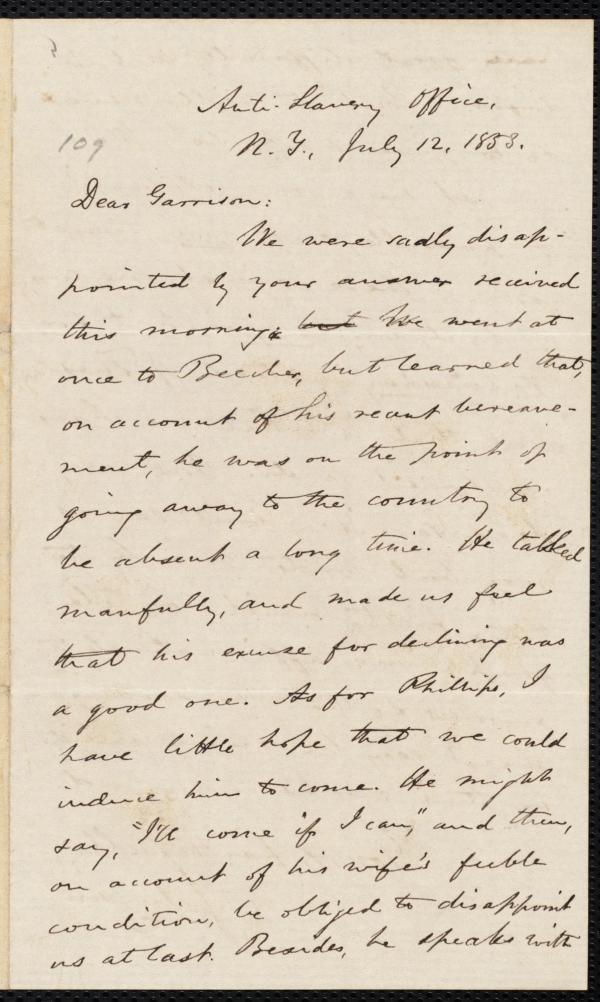 Anti-Slavery Office,
109
N. Y., July 12, 1853.
Dear Garrison:
We were sadly disap-
pointed by your answer received
this morning; but We went at
once to Beecher, but learned that,
on account of his recent bereave-
ment, he was on the point of
going away to the country to
be absent a long time. He talked
manfully, and made us feel
that his excuse for declining was
a good one. As for Phillips, I
have little hope that we could
induce him to come. He might
say, "I'll come if I can," and then,
on account of his wife's feeble
condition, be obliged to disappoint
us at last. Besides, he speaks with